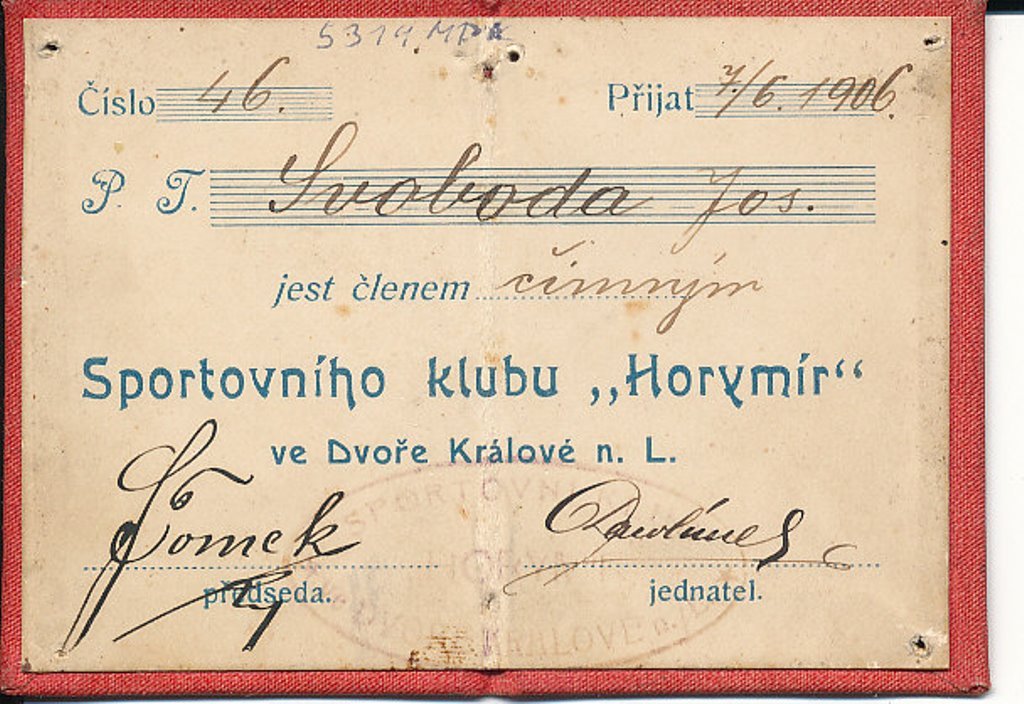 5319
Číslo 46. Přijat 7/6. 1906.
P. T. Svoboda Jos.
jest členem činným
Sportovního klubu „Horymír“
ve Dvoře Králové n. L.
předseda. jednatel.
SPORTOVNÍ
DVŮR KRÁLOVÉ n.